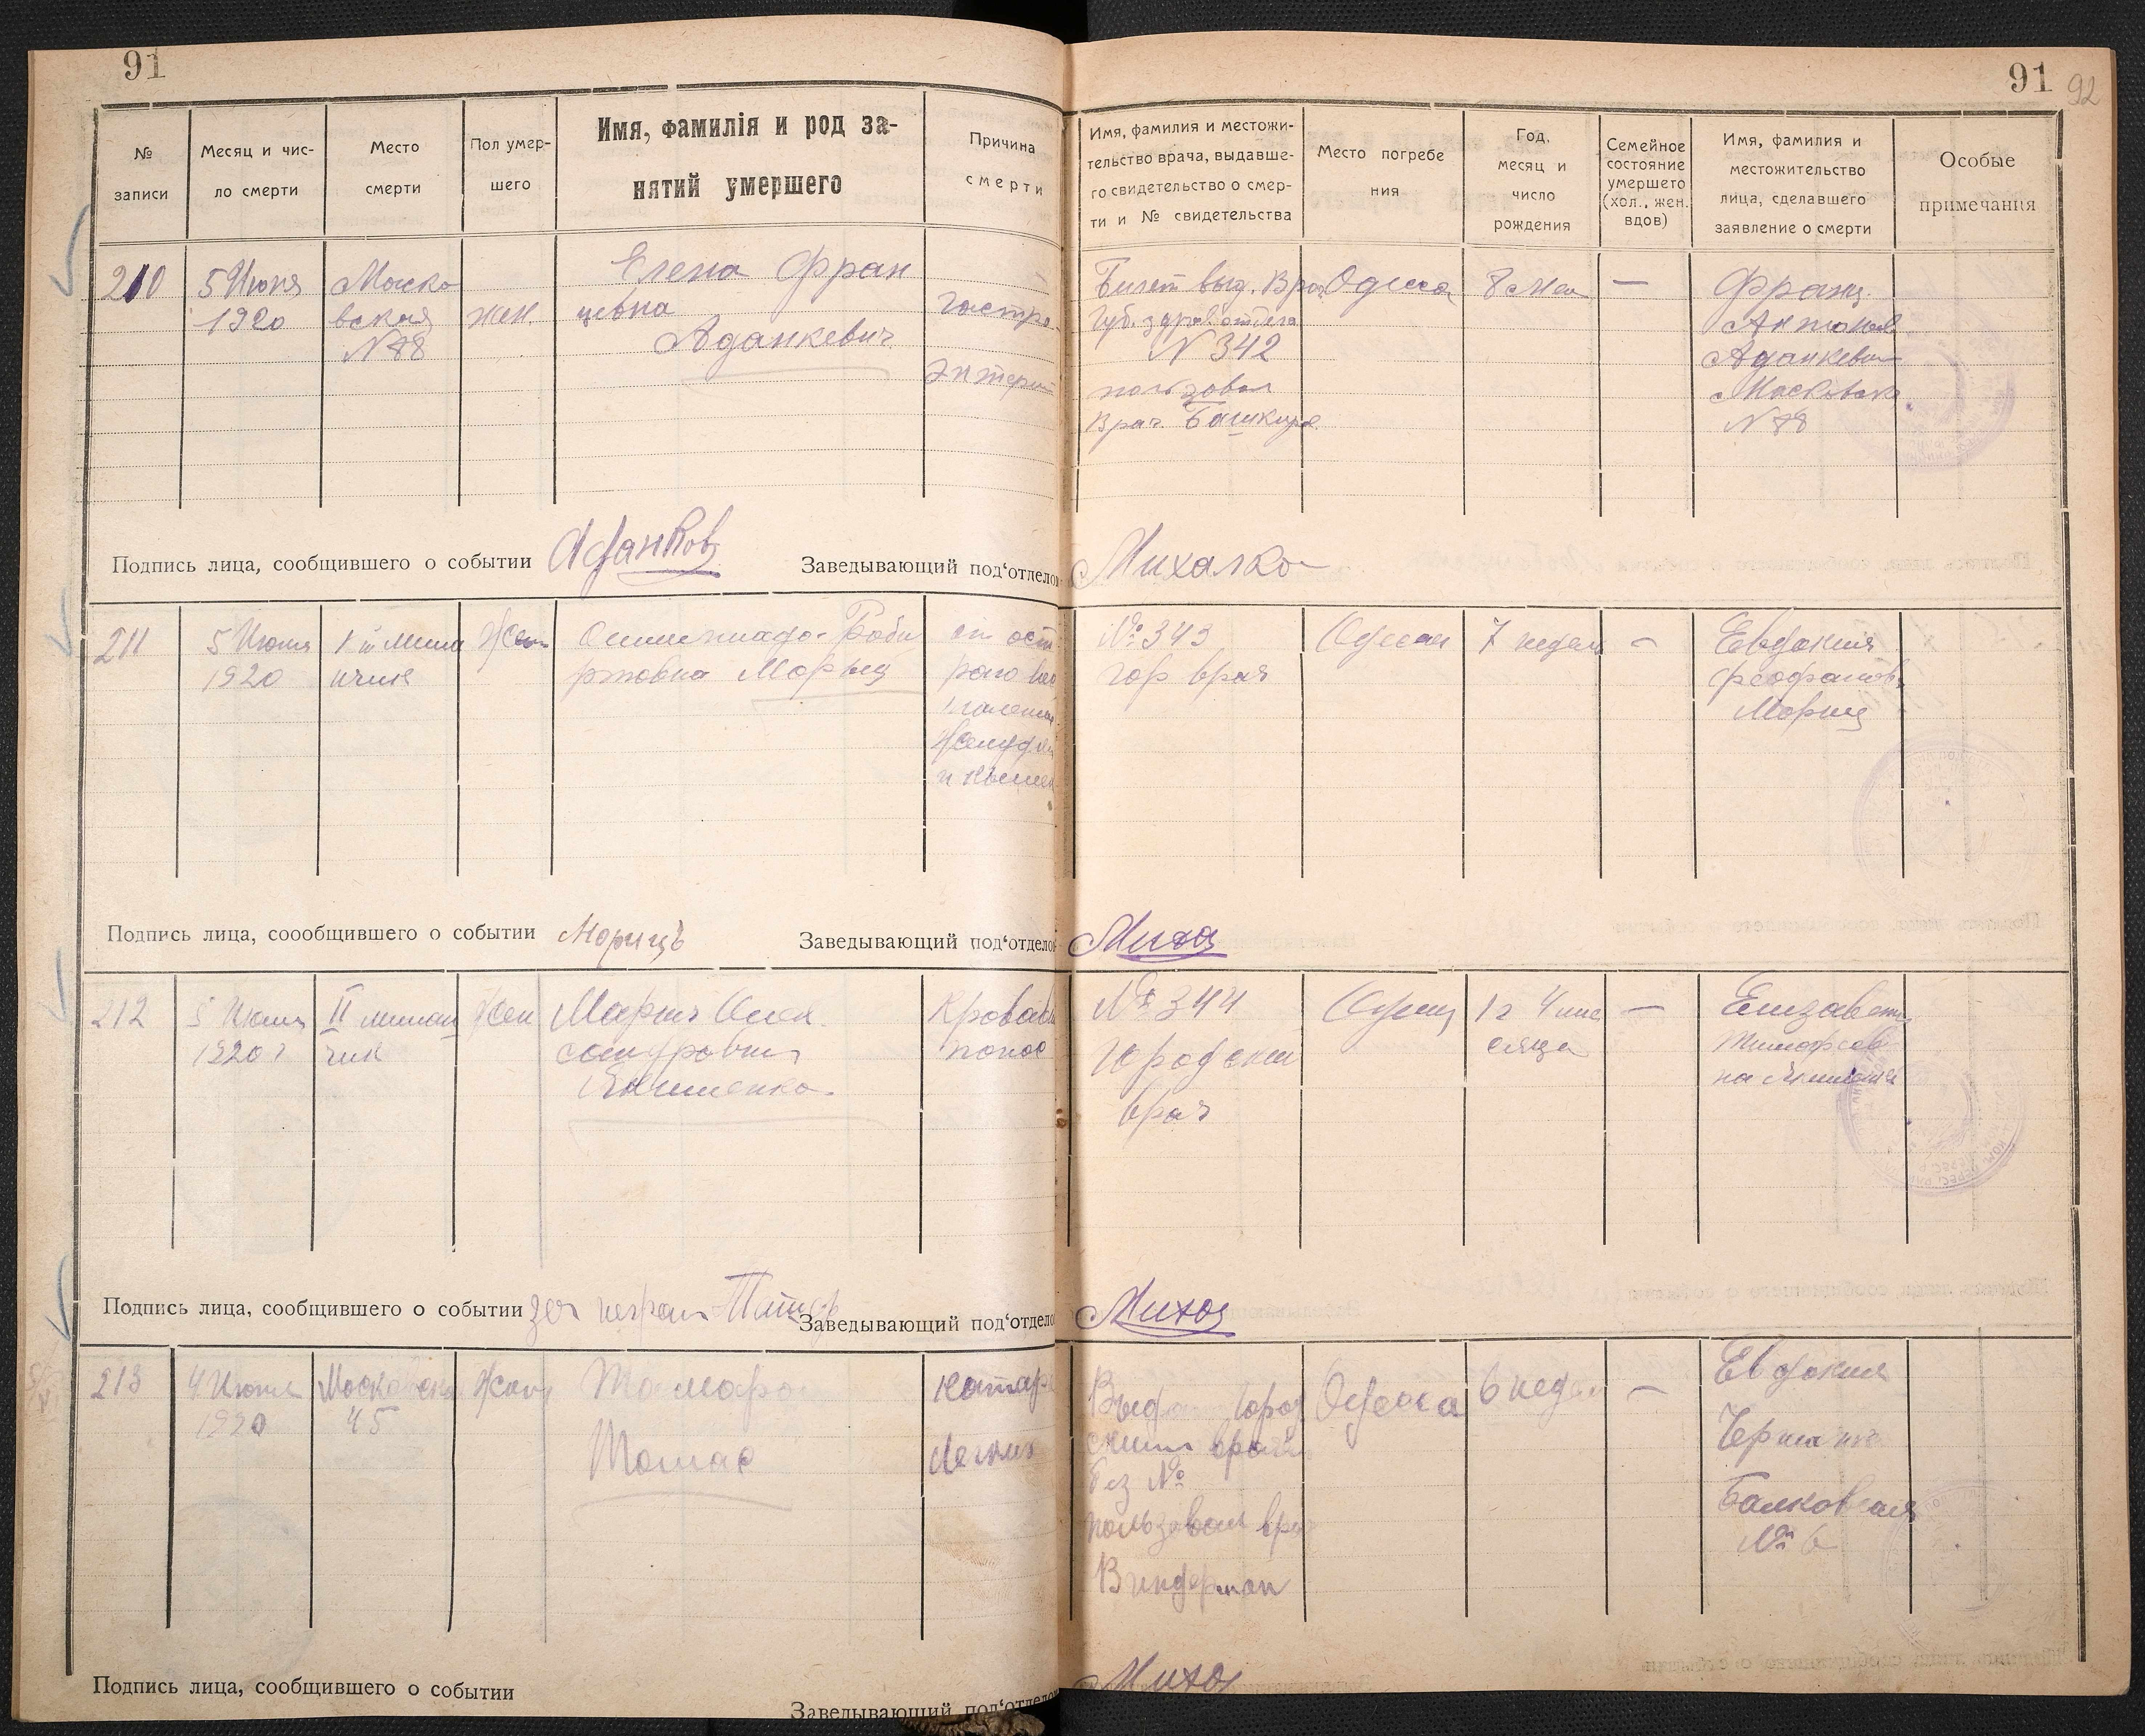 91
91
92
№
записи
Месяц и чис-
ло смерти
Место
смерти
Пол умер-
шего
Имя, фамилія и род за-
нятий умершего
Причина
смерти
Имя, фамилия и местожи-
тельство врача, выдавше-
го свидетельство о смер-
ти и № свидетельства
Место погребе
ния
Год,
месяц и
число
рождения
Семейное
состояние
умершего
(хол., жен.
вдов)
Имя, фамилия и
местожительство
лица, сделавшего
заявление о смерти
Особые
примечания
210
5 Июня
1920
Моско
вская
N 78
жен.
Елена Фран
цевна
Аданкевич
гастро
энтерит
Билет выд. Врач
Губ. здравотдела
N 342
пользовал
Врач
Одесса
8 мес
—
Франц
Антонов
Аданкевич
Московская
N 78
Подпись лица, сообщившего о событии
Заведывающий под‘отдело
Михалко
211
5 Июня
1920
Жен
Мориц
от ост
рого
желуд
и кишек
№ 343
гор врач
Одесса
7 недель
—
Евдокия
Феофанов
Мориц
Подпись лица, соообщившего о событии Морицъ
Заведывающий под‘отдело
Миха
212
5 Июня
1920 г
II
чик
Жен
Мария Алек
сандровна
Кровавы
понос
№ 344
Городской
врач
Одесса
1 г 4 ме
сяца
—
Елизавета
Тимофеев
на
Подпись лица, сообщившего о событии за неграм
Заведывающий под‘отдело
Миха
213
4 Июня
1920
Московская
45
Женс
Тамара
Томас
Катар
легких
Выдан Город
ским врачем
без №
пользовал врач
Виндерман
Одесса
6 недел
—
Евдокия
Балковская
№ 6
Подпись лица, сообщившего о событии
Заведывающий под‘отдело
Миха